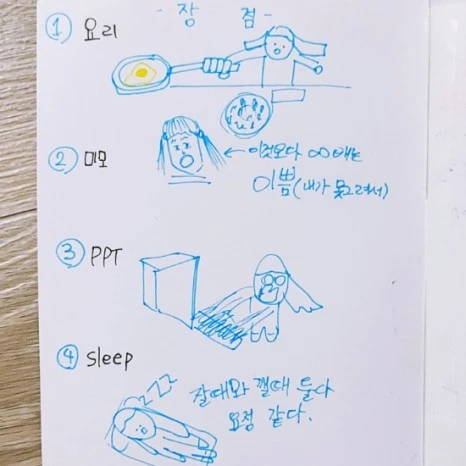 - 장 점 -
① 요리
② 미모
← 이것보다 ∞배는
이쁨 (내가 못그려서)
③ PPT
④ sleep
zzz
잘때와 깰때 둘다
요정 같다.